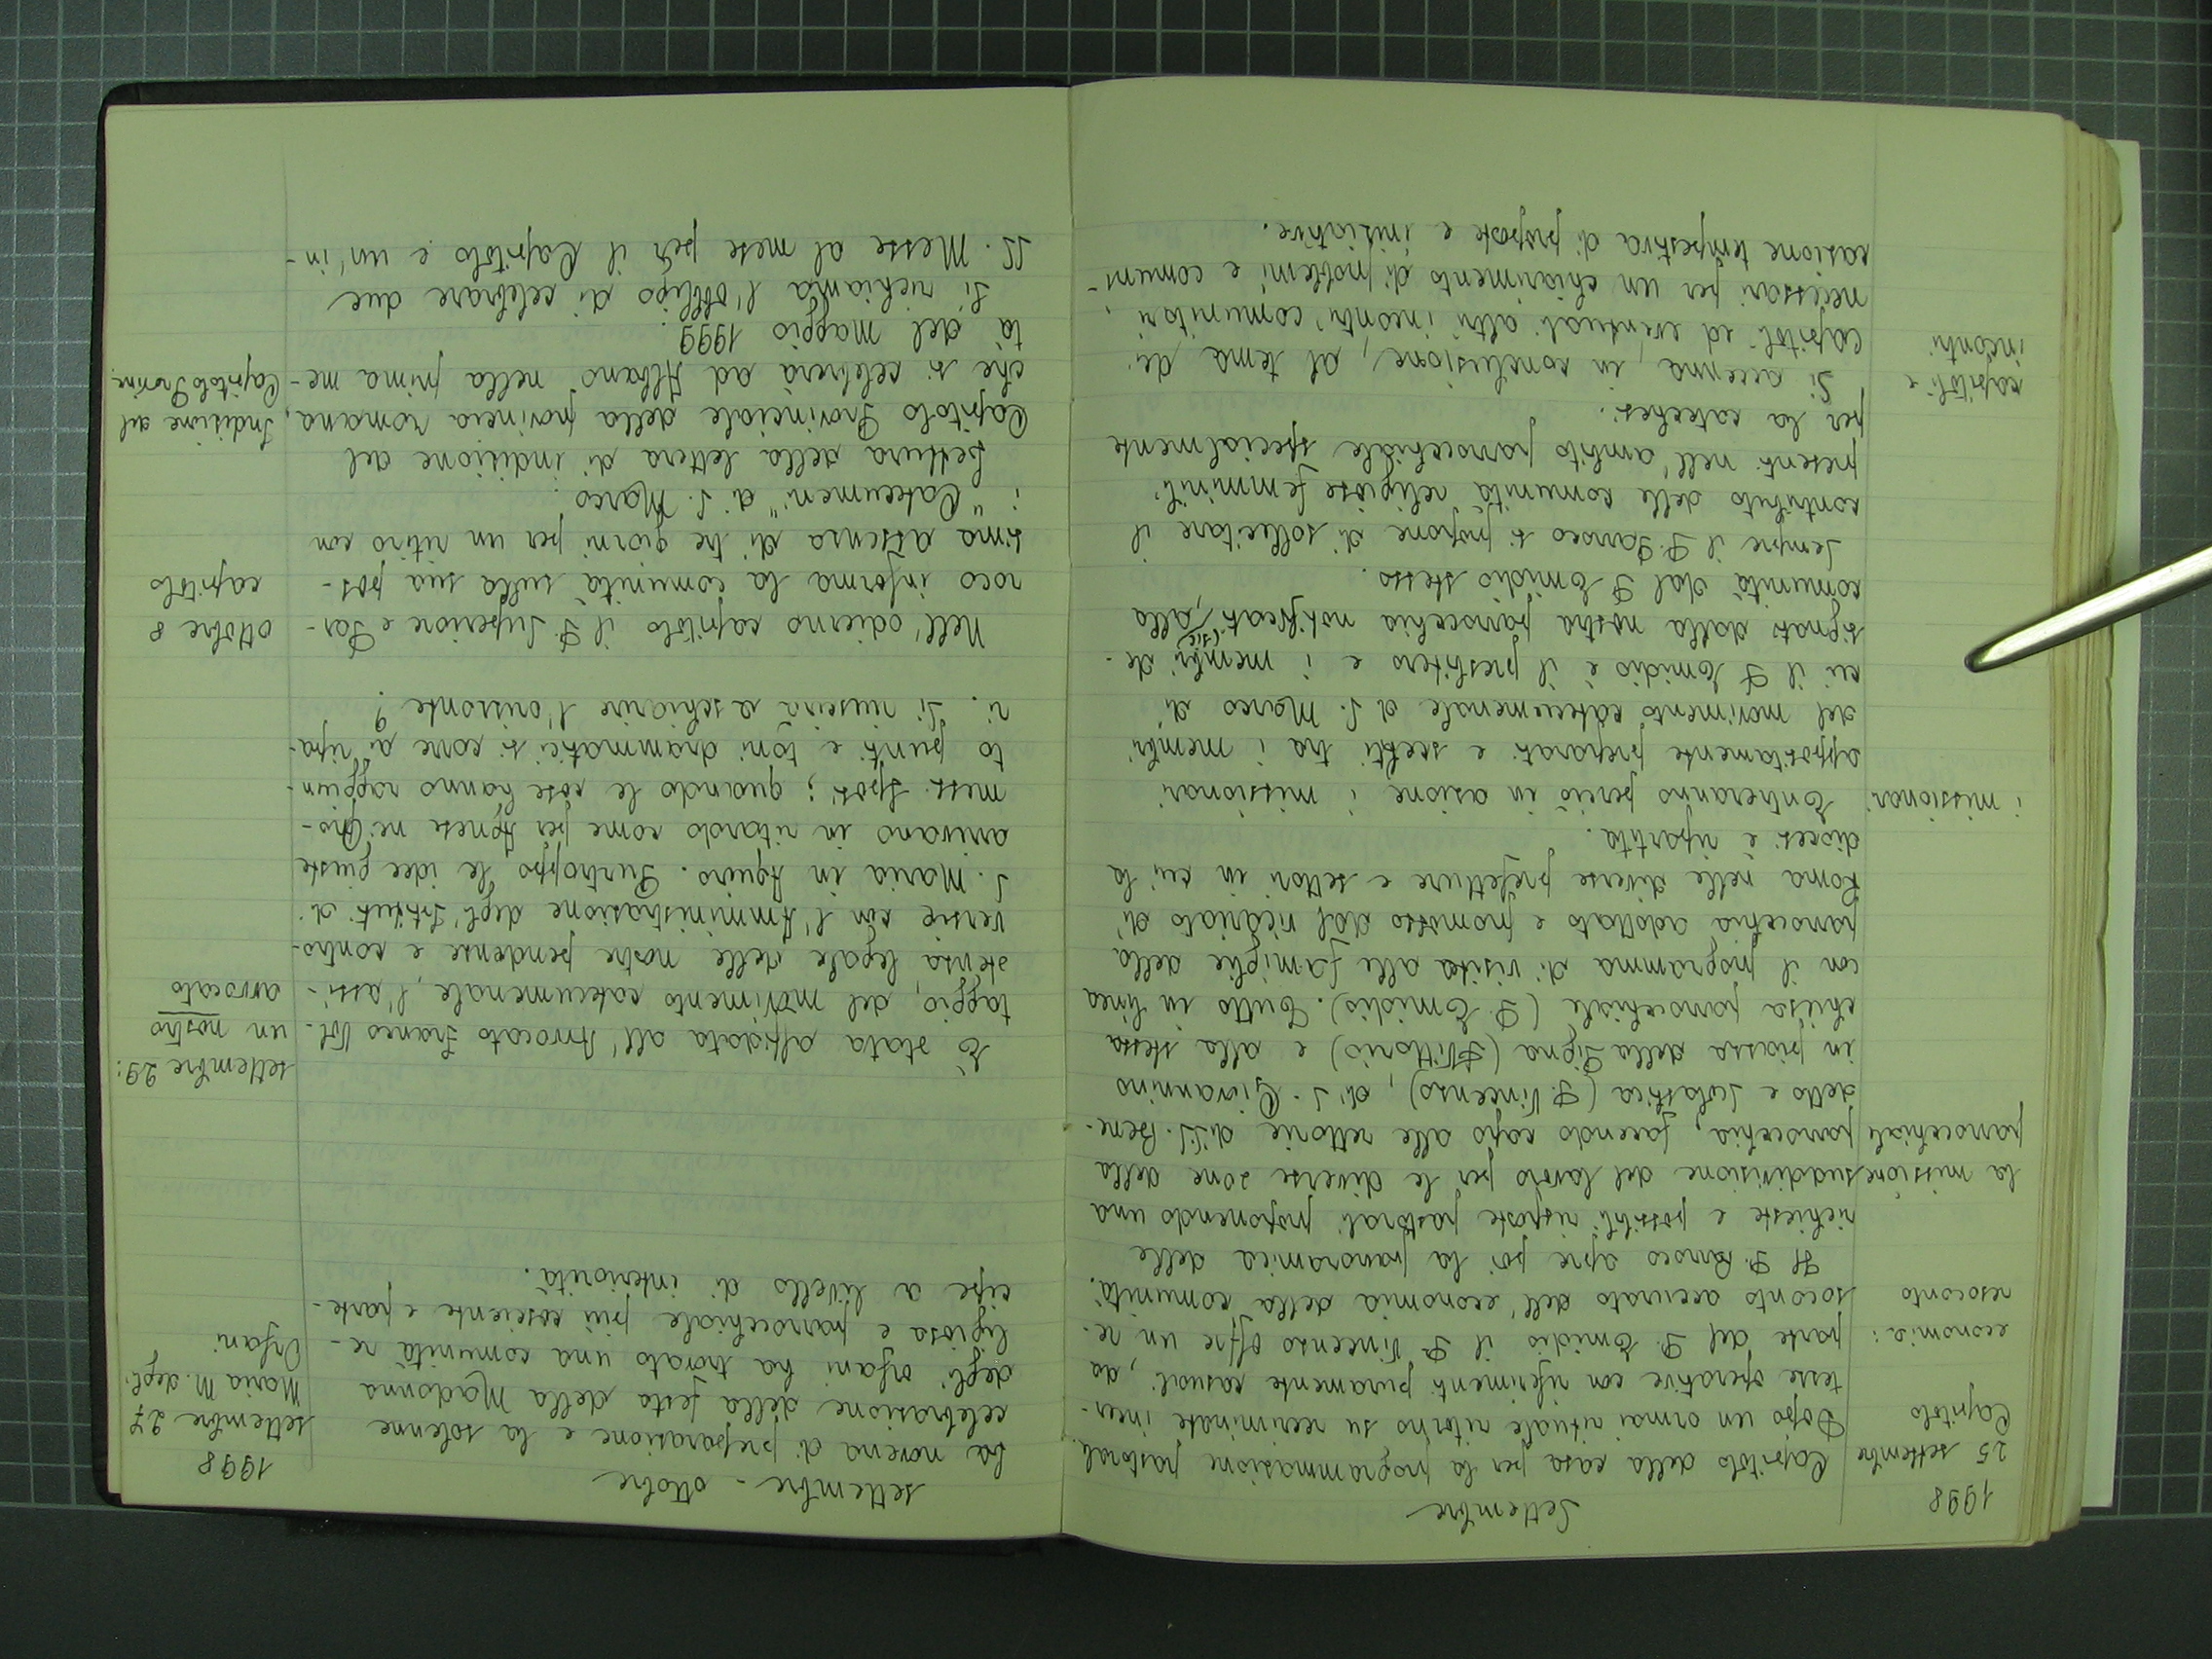 1998
Settembre
25 settembre
Capitolo
Capitolo della casa per la programmazione pastoral.
Dopo un ormai rituale ritorno su recriminate inter-
esse operative con riferimenti puramente casuali, da
economia:
resoconto
parte del P. Emidio il P. Vincenzo offre un re-
soconto accurato dell'economia della comunità.
Il P. Parroco apre poi la panoramica delle
richieste e possibili risposte pastorali proponendo una
la missione
parrocchiale
suddivisione del lavoro per le diverse zone della
parrocchia, facendo capo alle rettorie di SS. Bene-
detto e Scolastica (P. Vincenzo), di S. Giovannino
in piazza della Pigna (P. Vittorio) e alla stessa
chiesa parrocchiale (P. Emidio). Tutto in linea
con il programma di visita alle famiglie della
parrocchia adottato e promosso dal vicariato di
Roma nelle diverse prefetture e settori in cui la
diocesi è ripartita.
i missionari
Entreranno perciò in azione i missionari
appositamente preparati e scelti tra i membri
del movimento catecumenale di S. Marco di
cui il P. Emidio è il presbitero e i membri (sic) de-
signati dalla nostra parrocchia notificati alla
comunità dal P. Emidio stesso.
Sempre il P. Parroco si propone di sollecitare il
contributo delle comunità religiose femminili
presenti nell'ambito parrocchiale specialmente
per la catechesi.
capitoli e
incontri
Si accenna, in conclusione, al tema dei
capitoli ed eventuali altri incontri comunitari
necessari per un chiarimento di problemi e comuni-
cazione tempestiva di proposte e iniziative.
settembre - ottobre
1998
settembre 27
Maria M. degli
Orfani
La novena di preparazione e la solenne
celebrazione della festa della Madonna
degli Orfani ha trovato una comunità re-
ligiosa e parrocchiale più cosciente e parte-
cipe a livello di interiorità.
settembre 29:
un nostro
avvocato
È stata affidata all'Avvocato Franco Vol-
taggio, del movimento catecumenale, l'assi-
stenza legale delle nostre pendenze e contro-
versie con l'Amministrazione degl'Istituti di
S. Maria in Aquiro. Purtroppo le idee giuste
arrivano in ritardo come per Agnese nei Pro-
messi Sposi; quando le cose hanno raggiun-
to punti e toni drammatici si corre ai ripa-
ri. Si riuscirà a schiarire l'orizzonte?
ottobre 8
capitolo
Nell'odierno capitolo il P. Superiore e Par-
roco informa la comunità sulla sua pros-
sima assenza di tre giorni per un ritiro con
i "Catecumeni" di S. Marco.
Indizione del
Capitolo Provinc.
Lettura della lettera di indizione del
Capitolo Provinciale della provincia romana,
che si celebrerà ad Albano nella prima me-
tà del maggio 1999.
Si richiama l'obbligo di celebrare due
SS. Messe al mese per il Capitolo e un'in-